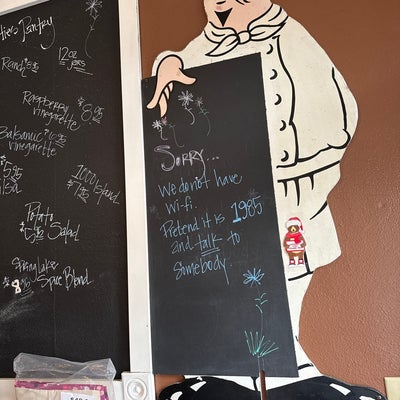 Pantry
Ranch
12oz
jars
Raspberry
vinegarette
$8.95
Balsamic
vinegarette
1000 Island
Potato
Salad
Spring Lake
Spice Blend
SORRY...
We do not have
wi-fi.
Pretend it is 1985
and talk to
somebody.